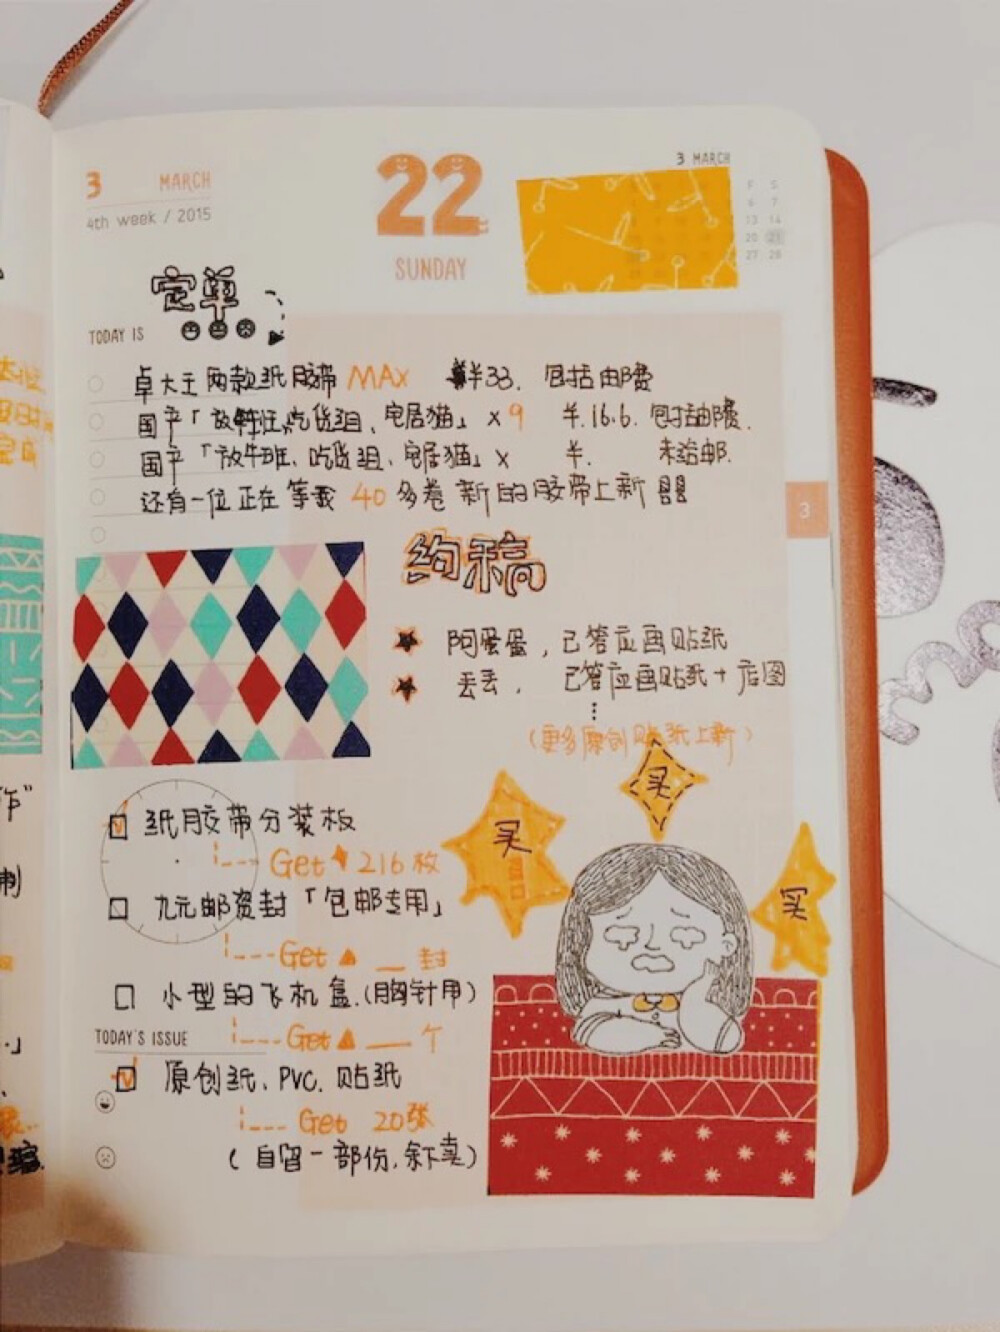 3 MARCH
4th week / 2015
22
SUNDAY
3 MARCH
F S
6 7
13 14
20 21
27 28
定单
TODAY IS
卓大王两款纸胶带 MAX 半33. 包括邮费
国产「放牛班、吃货组、宅居猫」×9 半.16.6. 包括邮费.
国产「放牛班、吃货组、宅居猫」× 半. 未给邮.
还有一位正在等我 40 多卷新的胶带上新
3
约稿
阿蛋蛋,已答应画贴纸
丢丢, 已答应画贴纸+店图
(更多原创贴纸上新)
买
买
买
纸胶带分装板
Get 216枚
九元邮资封「包邮专用」
Get __ 封
小型的飞机盒.(胸针用)
Get __ 个
TODAY'S ISSUE
原创纸、PVC. 贴纸
Get 20张
(自留一部份,余下卖)